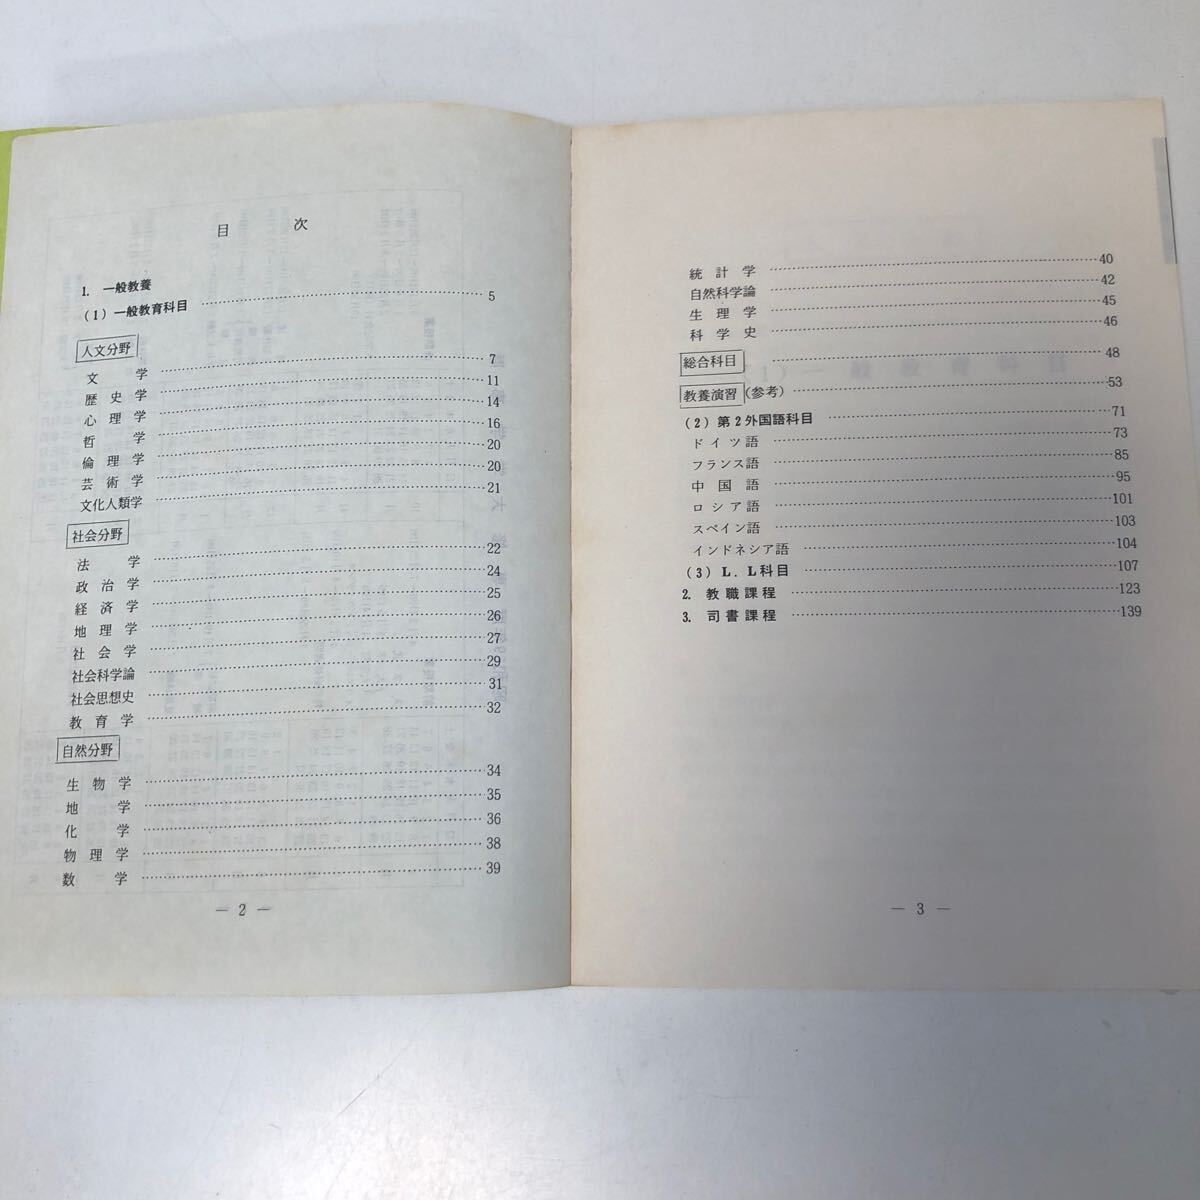 目　　次
1. 一般教養
(1) 一般教育科目 ……… 5
人文分野
文　学 ……… 7
歴史学 ……… 11
心理学 ……… 14
哲　学 ……… 16
倫理学 ……… 20
芸術学 ……… 20
文化人類学 ……… 21
社会分野
法　学 ……… 22
政治学 ……… 24
経済学 ……… 25
地理学 ……… 26
社会学 ……… 27
社会科学論 ……… 29
社会思想史 ……… 31
教育学 ……… 32
自然分野
生物学 ……… 34
地　学 ……… 35
化　学 ……… 36
物理学 ……… 38
数　学 ……… 39
— 2 —
統計学 ……… 40
自然科学論 ……… 42
生理学 ……… 45
科学史 ……… 46
総合科目 ……… 48
教養演習 (参考) ……… 53
(2) 第2外国語科目 ……… 71
ドイツ語 ……… 73
フランス語 ……… 85
中国語 ……… 95
ロシア語 ……… 101
スペイン語 ……… 103
インドネシア語 ……… 104
(3) L.L科目 ……… 107
2. 教職課程 ……… 123
3. 司書課程 ……… 139
— 3 —